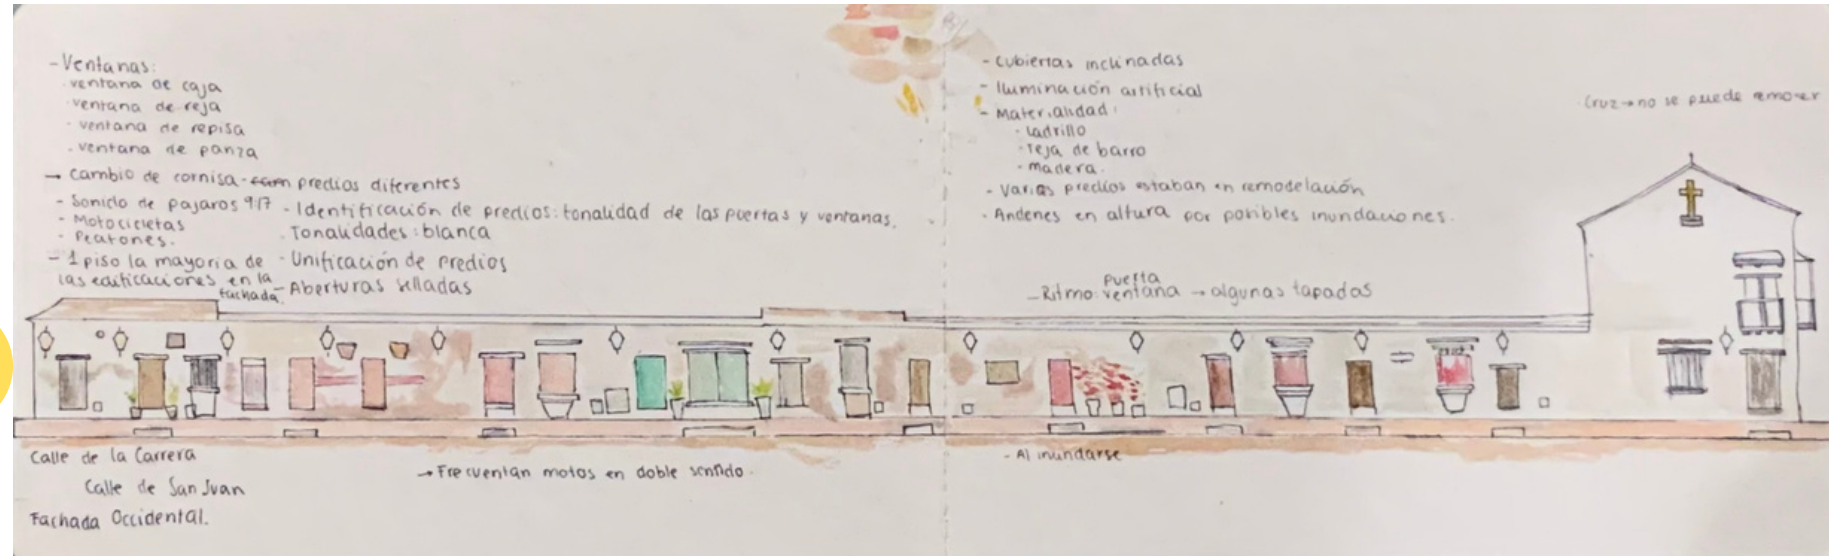 - Ventanas:
· ventana de caja
· ventana de reja
· ventana de repisa
· ventana de panza
→ Cambio de cornisa - predios diferentes
- Sonido de pajaros 9:17
- Motocicletas
- Peatones.
- 1 piso la mayoria de
las edificaciones en la
fachada.
- Identificación de predios: tonalidad de las puertas y ventanas.
· Tonalidades: blanca
- Unificación de predios
- Aberturas selladas
- Cubiertas inclinadas
- Iluminación artificial
- Materialidad:
· ladrillo
· Teja de barro
- madera.
- Varios predios estaban en remodelación
- Andenes en altura por posibles inundaciones.
- Ritmo: puerta
ventana → algunas tapadas
· Cruz → no se puede remover
Calle de la Carrera
Calle de San Juan
Fachada Occidental.
→ Frecuentan motos en doble sentido.
- Al inundarse